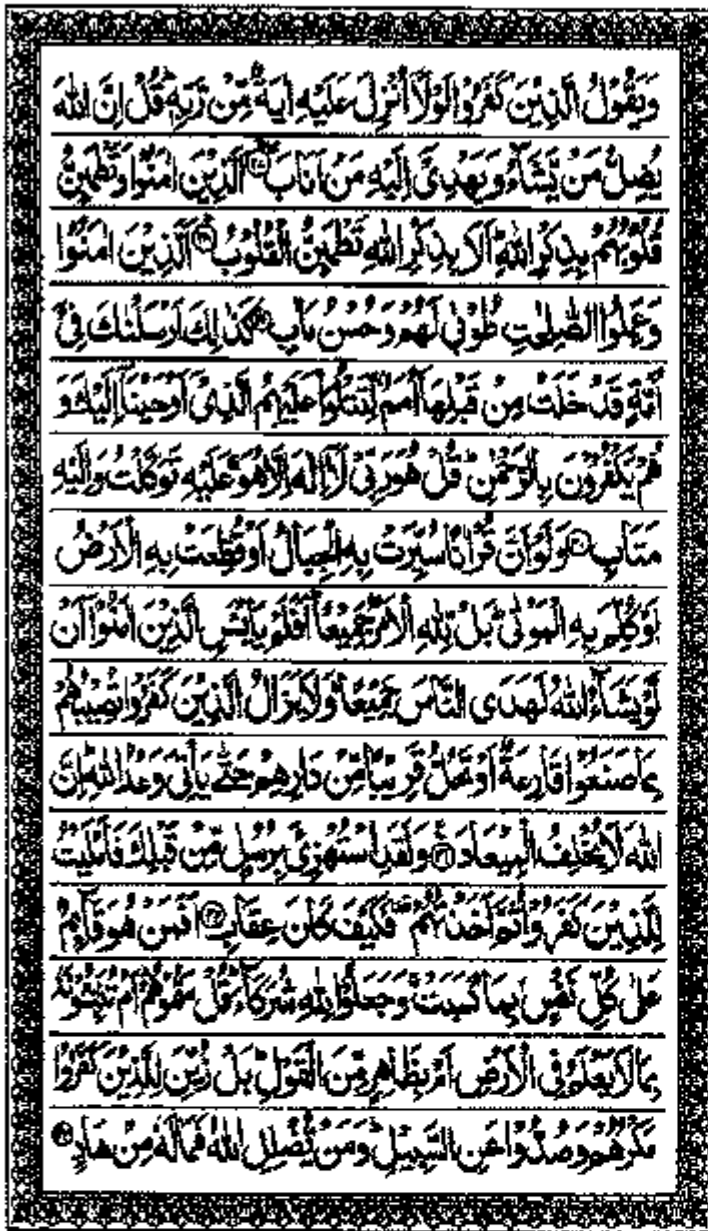 وَيَقُوۡلُ الَّذِيۡنَ كَفَرُوۡا لَوۡلَاۤ اُنۡزِلَ عَلَيۡهِ اٰيَةٌ مِّنۡ رَّبِّهٖ ؕ قُلۡ اِنَّ اللّٰهَ
يُضِلُّ مَنۡ يَّشَآءُ وَيَهۡدِىۡۤ اِلَيۡهِ مَنۡ اَنَابَ ۖ ۚ‏ اَلَّذِيۡنَ اٰمَنُوۡا وَتَطۡمَئِنُّ
قُلُوۡبُهُمۡ بِذِكۡرِ اللّٰهِ ؕ اَلَا بِذِكۡرِ اللّٰهِ تَطۡمَئِنُّ الۡقُلُوۡبُ ؕ‏ اَلَّذِيۡنَ اٰمَنُوۡا
وَعَمِلُوا الصّٰلِحٰتِ طُوۡبٰى لَهُمۡ وَحُسۡنُ مَاٰبٍ كَذٰلِكَ اَرۡسَلۡنٰكَ فِىۡۤ
اُمَّةٍ قَدۡ خَلَتۡ مِنۡ قَبۡلِهَاۤ اُمَمٌ لِّتَتۡلُوَا۟ عَلَيۡهِمُ الَّذِىۡۤ اَوۡحَيۡنَاۤ اِلَيۡكَ وَ
هُمۡ يَكۡفُرُوۡنَ بِالرَّحۡمٰنِ ؕ قُلۡ هُوَ رَبِّىۡ لَاۤ اِلٰهَ اِلَّا هُوَ ۚ عَلَيۡهِ تَوَكَّلۡتُ وَاِلَيۡهِ
مَتَابِ ٣٠ وَلَوۡ اَنَّ قُرۡاٰنًا سُيِّرَتۡ بِهِ الۡجِبَالُ اَوۡ قُطِّعَتۡ بِهِ الۡاَرۡضُ
اَوۡ كُلِّمَ بِهِ الۡمَوۡتٰى ؕ بَلْ لِّلّٰهِ الۡاَمۡرُ جَمِيۡعًا ؕ اَفَلَمۡ يَايۡـَٔسِ الَّذِيۡنَ اٰمَنُوۡۤا اَنۡ
لَّوۡ يَشَآءُ اللّٰهُ لَهَدَى النَّاسَ جَمِيۡعًا ؕ وَلَا يَزَالُ الَّذِيۡنَ كَفَرُوۡا تُصِيۡبُهُمۡ
بِمَا صَنَعُوۡا قَارِعَةٌ اَوۡ تَحُلُّ قَرِيۡبًا مِّنۡ دَارِهِمۡ حَتّٰى يَاۡتِىَ وَعۡدُ اللّٰهِ ؕ اِنَّ
اللّٰهَ لَا يُخۡلِفُ الۡمِيۡعَادَ ٣١ وَلَقَدِ اسۡتُهۡزِئَ بِرُسُلٍ مِّنۡ قَبۡلِكَ فَاَمۡلَيۡتُ
لِلَّذِيۡنَ كَفَرُوۡا ثُمَّ اَخَذۡتُهُمۡ فَكَيۡفَ كَانَ عِقَابِ ٣٢ اَفَمَنۡ هُوَ قَآئِمٌ
عَلٰى كُلِّ نَفۡسٍۢ بِمَا كَسَبَتۡ ۚ وَجَعَلُوۡا لِلّٰهِ شُرَكَآءَ ؕ قُلۡ سَمُّوۡهُمۡ ؕ اَمۡ تُنَبِّـــُٔوۡنَهٗ
بِمَا لَا يَعۡلَمُ فِى الۡاَرۡضِ اَمۡ بِظَاهِرٍ مِّنَ الۡقَوۡلِ ؕ بَلۡ زُيِّنَ لِلَّذِيۡنَ كَفَرُوۡا
مَكۡرُهُمۡ وَصُدُّوۡا عَنِ السَّبِيۡلِ ؕ وَمَنۡ يُّضۡلِلِ اللّٰهُ فَمَا لَهٗ مِنۡ هَادٍ